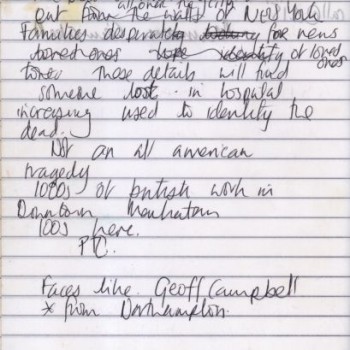 out from the walls of New York
Families desperately looking for news
loved ones hope identity of loved ones
loved these details will find
someone lost in hospital
increasing used to identify the
dead.
Not an all american
tragedy
1000s of british work in
Downtown Manhattan
100s here.
PTC.
Faces like Geoff Campbell
* from Northampton.